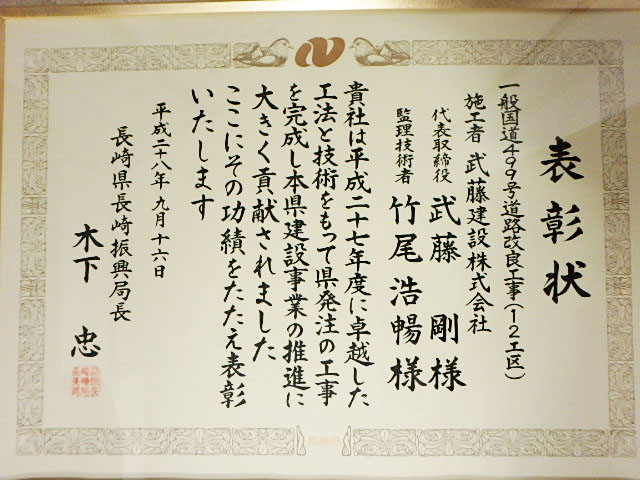 表彰状
一般国道499号道路改良工事(12工区)
施工者 武藤建設株式会社
代表取締役 武藤 剛様
監理技術者 竹尾浩暢様
貴社は平成二十七年度に卓越した
工法と技術をもって県発注の工事
を完成し本県建設事業の推進に
大きく貢献されました
ここにその功績をたたえ表彰
いたします
平成二十八年九月十六日
長崎県長崎振興局長
木下 忠